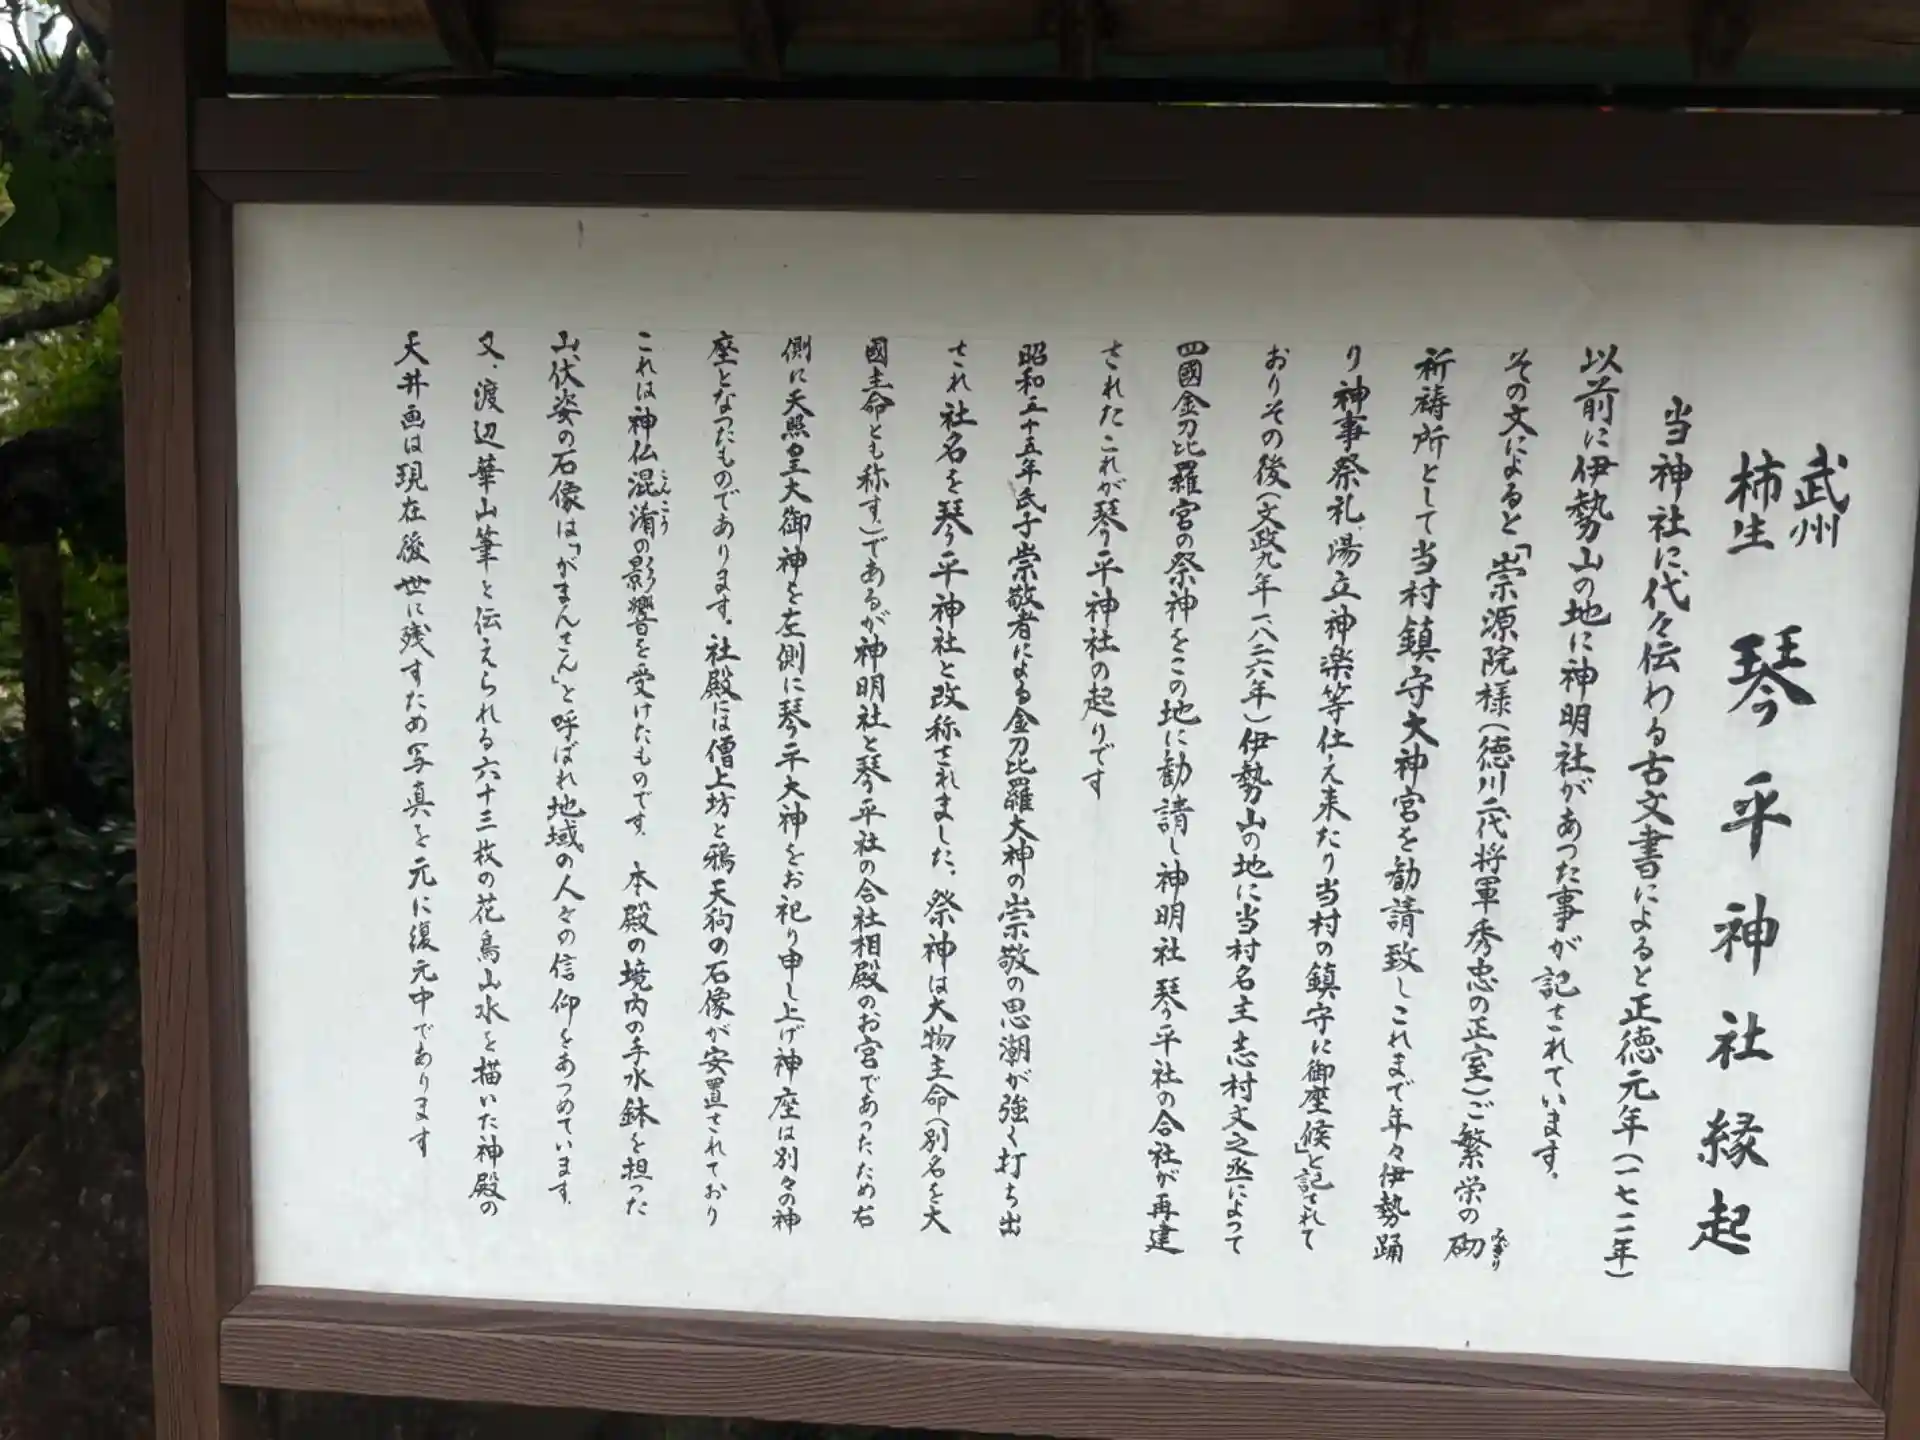 武州
柿生
琴平神社縁起
当神社に代々伝わる古文書によると正徳元年(一七一一年)
以前に伊勢山の地に神明社があった事が記されています。
その文によると「崇源院様(徳川二代将軍秀忠の正室)ご繁栄の砌
みぎり
祈祷所として当村鎮守大神宮を勧請致しこれまで年々伊勢踊
り神事祭礼、湯立神楽等仕え来たり当村の鎮守に御座候」と記されて
おりその後(文政九年一八二六年)伊勢山の地に当村名主志村文之丞によって
四國金刀比羅宮の祭神をこの地に勧請し神明社 琴平社の合社が再建
されたこれが琴平神社の起りです
昭和五十五年氏子崇敬者による金刀比羅大神の崇敬の思潮が強く打ち出
され社名を琴平神社と改称されました。祭神は大物主命(別名を大
國主命とも称す。)であるが神明社と琴平社の合社相殿のお宮であったため右
側に天照皇大御神を左側に琴平大神をお祀り申し上げ神座は別々の神
座となったものであります。社殿には僧上坊と鴉天狗の石像が安置されており
これは神仏混淆の影響を受けたものです。本殿の境内の手水鉢を担った
こんこう
山伏姿の石像は「がまんさん」と呼ばれ地域の人々の信仰をあつめています。
又、渡辺華山筆と伝えられる六十三枚の花鳥山水を描いた神殿の
天井画は現在後世に残すため写真を元に復元中であります